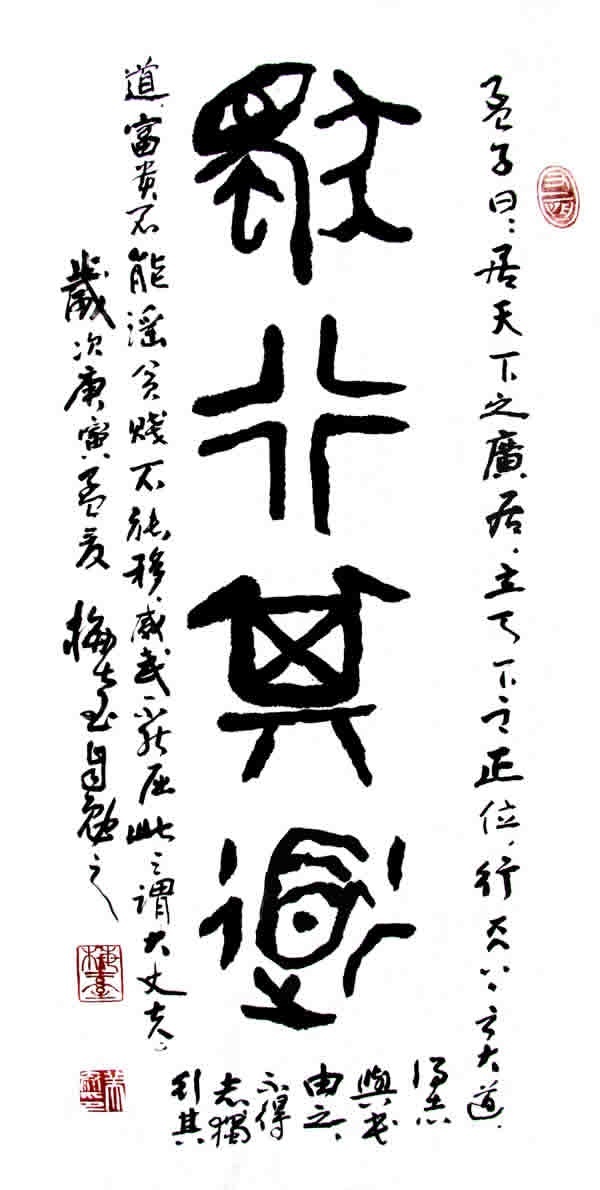 獨行其道
孟子曰：居天下之廣居．立天下之正位，行天下之大道．
得志
與民
由之，
不得
志獨
行其
道．富貴不能淫貧賤不能移．威武不能屈此之謂大丈夫．
歲次庚寅孟夏 梅臺自勉之
梅臺